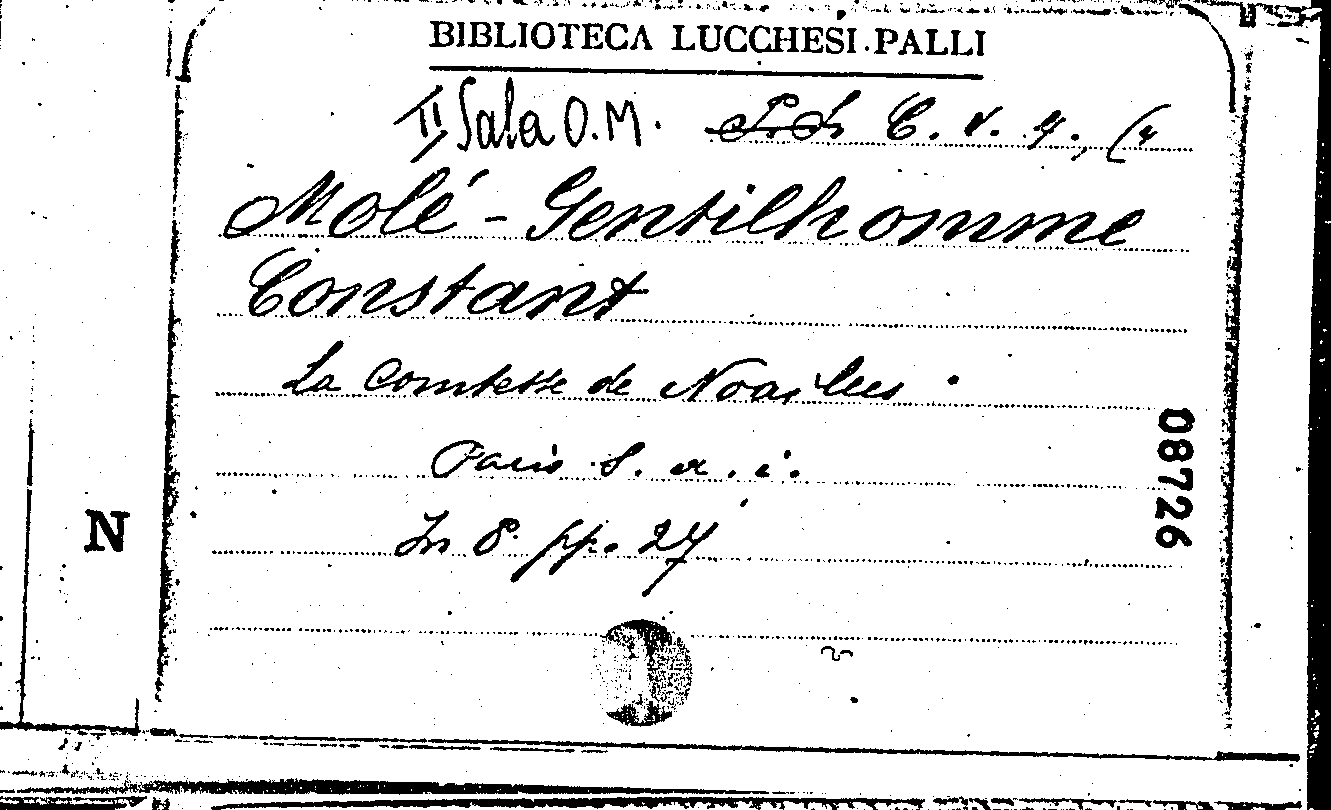 BIBLIOTECA LUCCHESI.PALLI
II Sala O.M. C. V. 9., (4
Molé-Gentilhomme
Constant
La Comtesse de Noailles.
Paris S. a. i.
In 8° pp. 27
08726
N